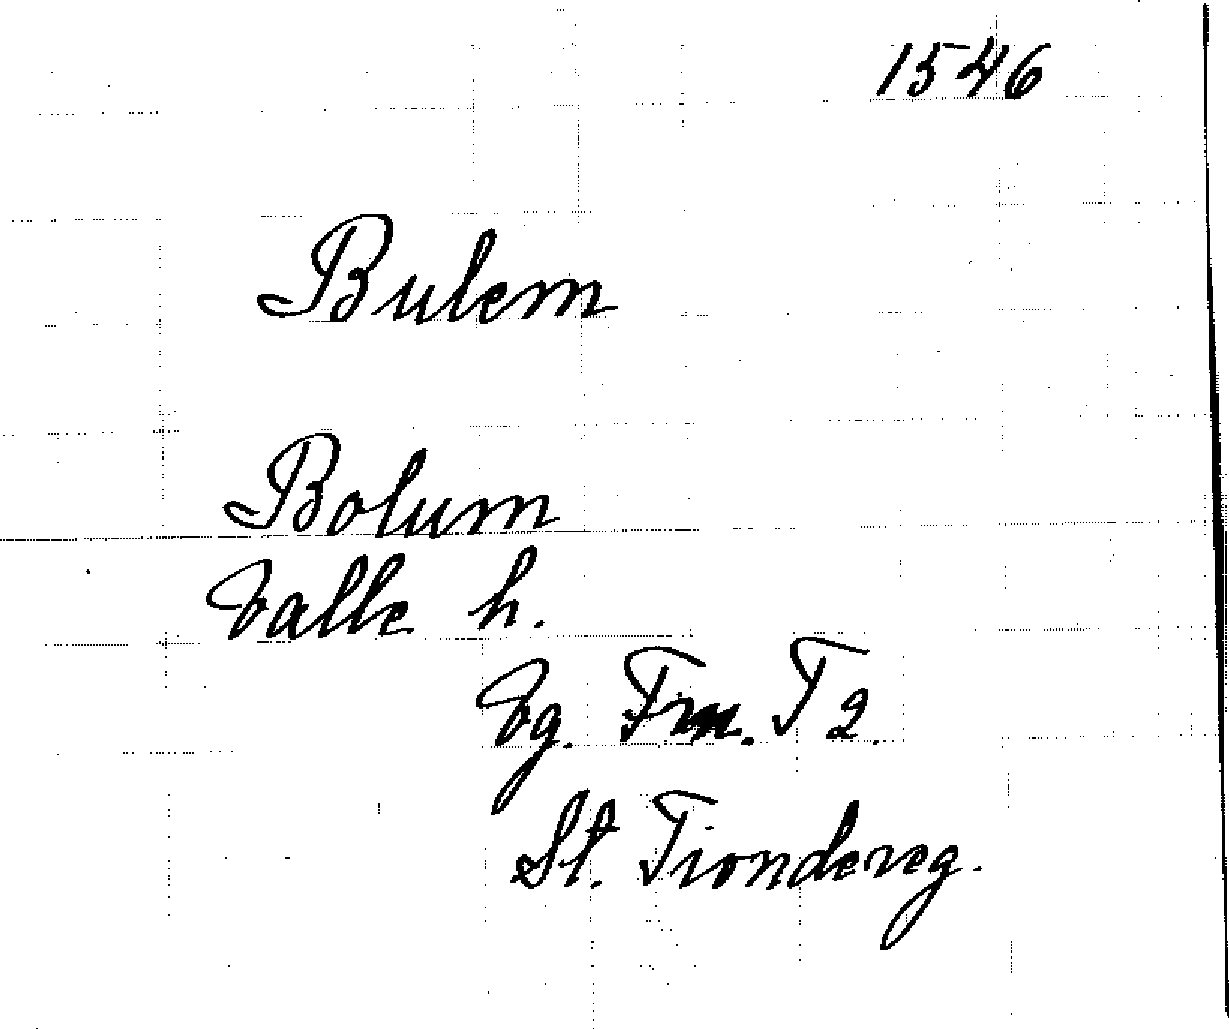 1546
Bulem
Bolum
Valle h.
Vg. Fm. T 2.
St. Tiondereg.